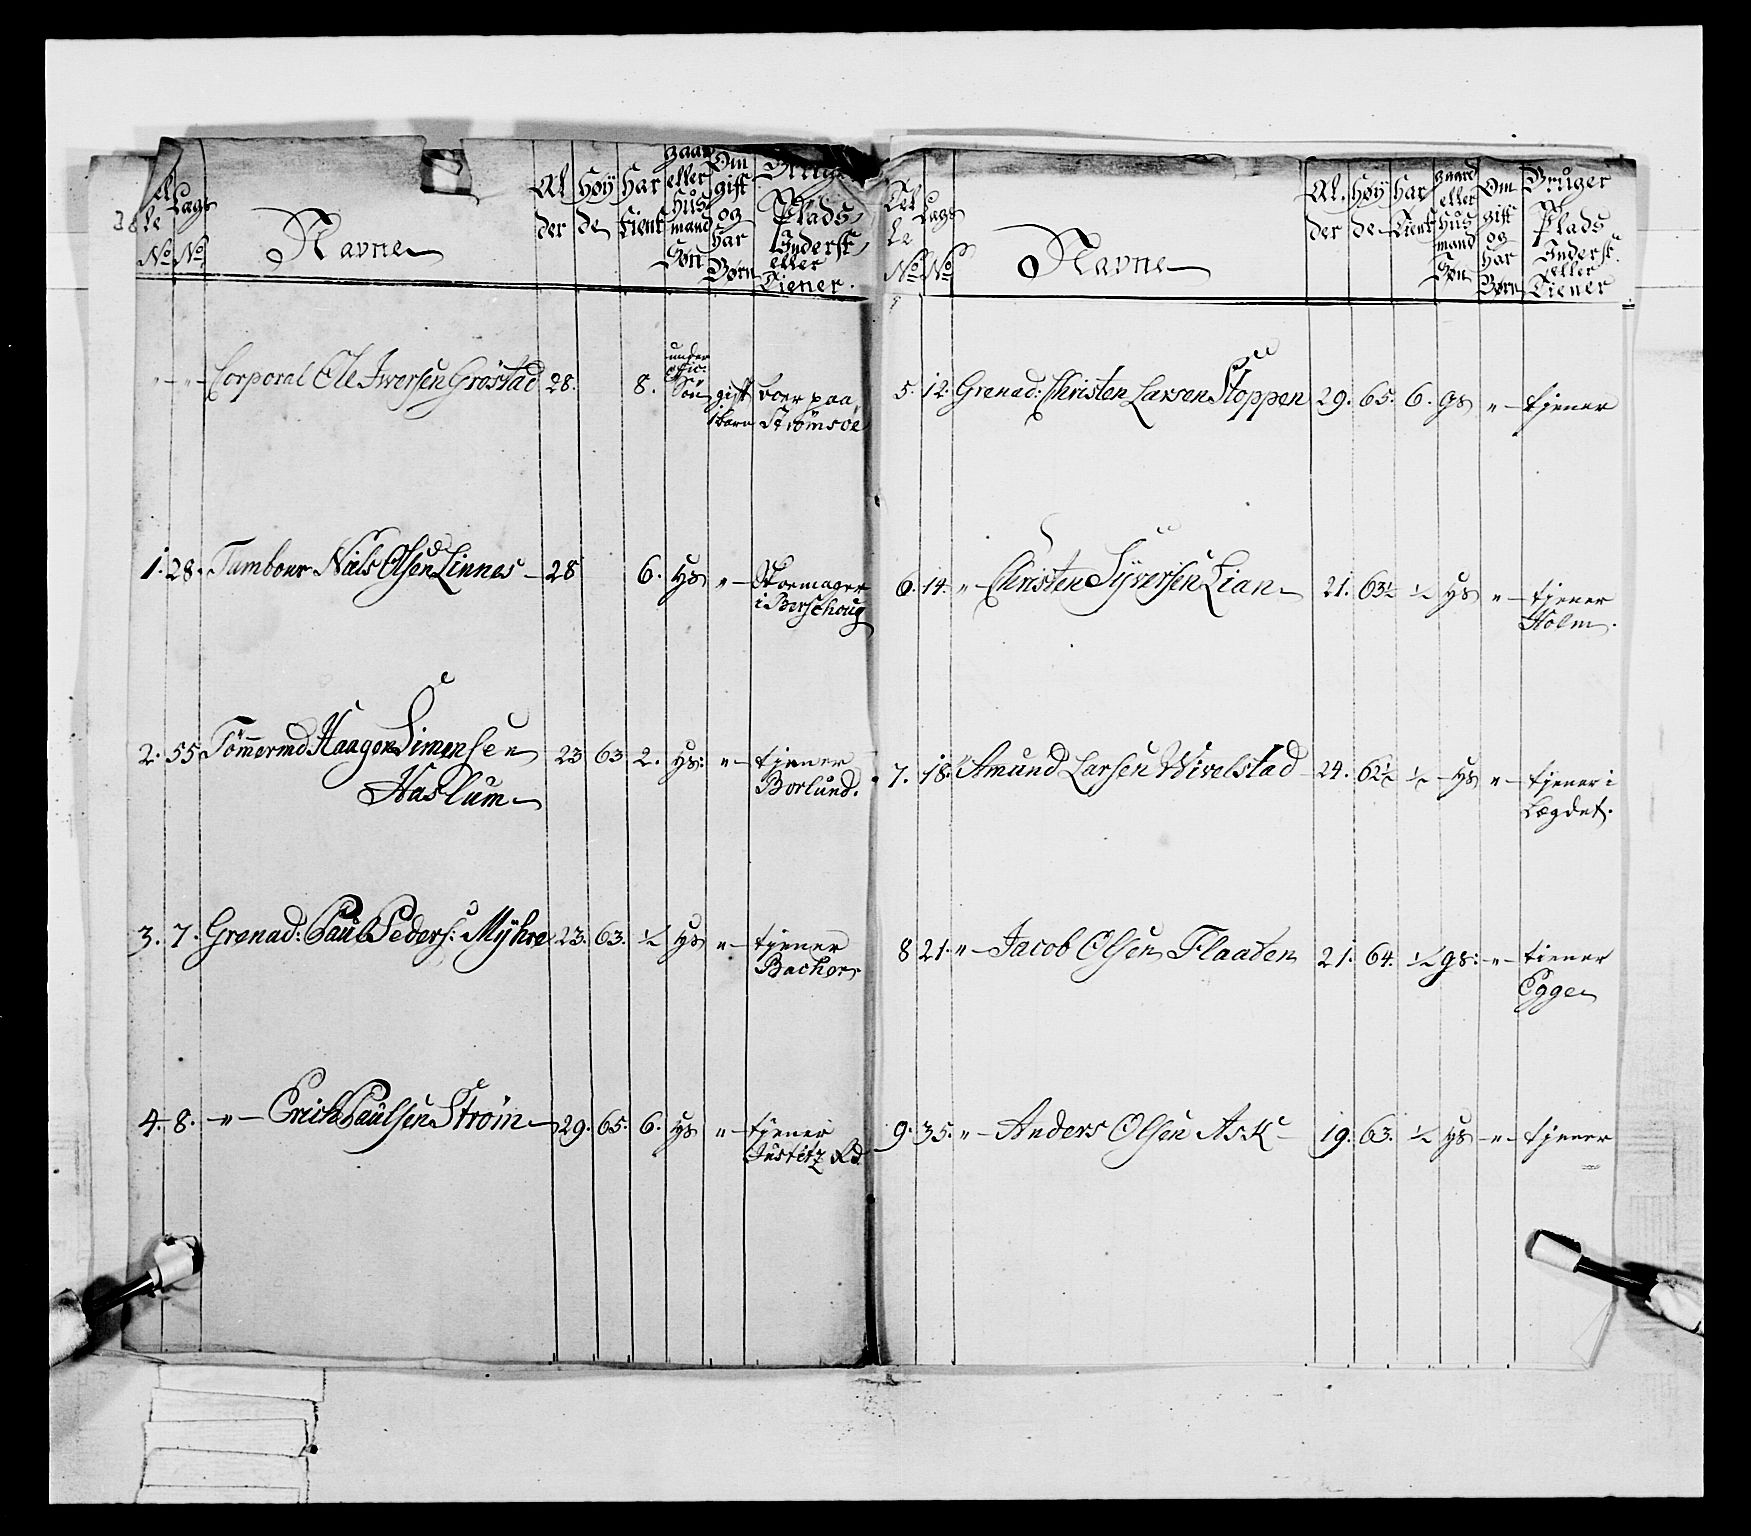 Lags No
Navne
Al der
Høy de
Har tient
gaard eller Hus mand Søn
Om gift og har Børn
Bruger Plads Inderst eller Tiener.
" — " — Corporal Ole Iversen Gróstad 28. 8. under ofic: Søn gift 1 barn boer paa Strömsöe
1. 28. Tambour Niels Olsen Linnes — 28 6. Hs " — Skoemager
i Berschoug
2. 55 Tömermd Haagen Simensen 23 63 2. Hs: " — tjener
Haslum Borlund.
3. 7. Grenad: Paul Peders: Mÿhre 23. 63. ½ Hs " — tjener
Bacher
4. 8. — " — Erich Paulsen Strøm 29. 65. 6. Hs " — tjener
Justitz Rd
Tel le No
Lags No
Navne
Al. der
Høy de
Har tient
gaard eller Hus mand Søn
Om gift og har Børn
Bruger Plads Inderst. eller Tiener
5. 12. Grenad: Christen Larsen Stoppen 29. 65. 6. gs " — tjener
6. 14. " — Christen Syversen Lian 21. 63½ ½ Hs " — tjener
Holm.
7. 18. " Amund Larsen Wivelstad 24. 62½ ½ Hs " — tjener i
Lægdet.
8 21. " — Jacob Olsen Flaaten 21. 64. ½ gs: — " — tiener
Egge
9. 35. " — Anders Olsen Ask — 19. 63. ½ Hs — " — tjener